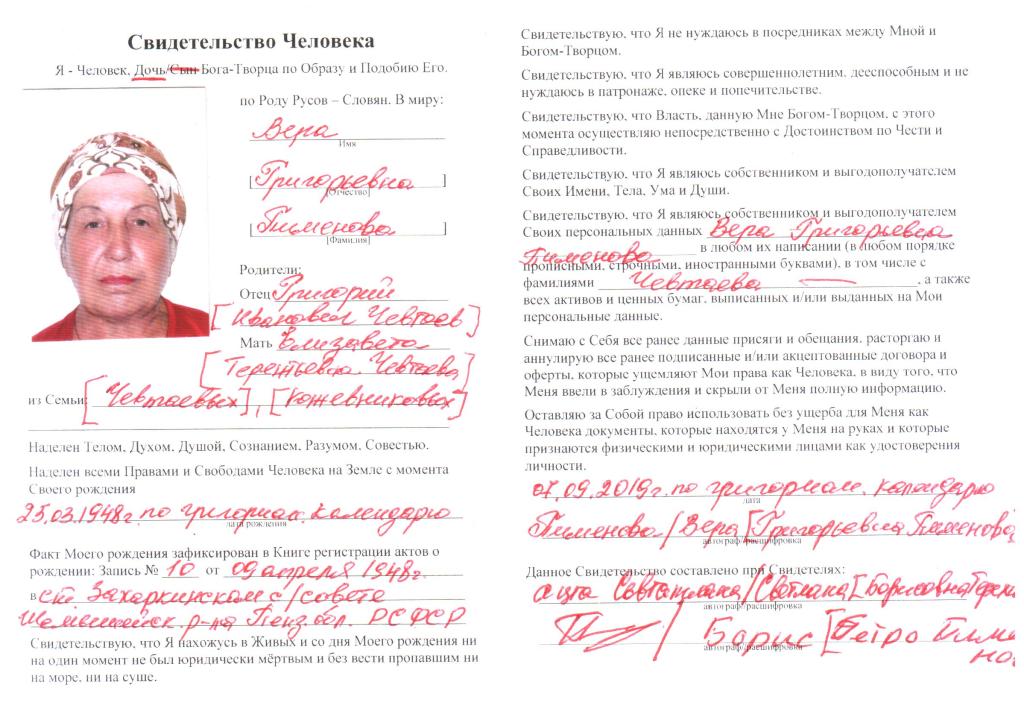 Свидетельство Человека
Я - Человек, Дочь/Сын Бога-Творца по Образу и Подобию Его.
по Роду Русов – Словян. В миру:
Вера
Имя
[Григорьевна]
[Отчество]
[Пименова]
[Фамилия]
Родители:
Отец Григорий
[Иванович Чевтаев]
Мать Елизавета
[Терентьевна Чевтаева]
из Семьи: [Чевтаевых], [Кожевниковых]
Наделен Телом, Духом, Душой, Сознанием, Разумом, Совестью.
Наделен всеми Правами и Свободами Человека на Земле с момента
Своего рождения
25.03.1948г. по григориан. календарю
дата рождения
Факт Моего рождения зафиксирован в Книге регистрации актов о
рождении: Запись № 10 от 09 апреля 1948г.
в Захаркинском с/совете
Шемышейск. р-на Пенз. обл. РСФСР
Свидетельствую, что Я нахожусь в Живых и со дня Моего рождения ни
на один момент не был юридически мёртвым и без вести пропавшим ни
на море, ни на суше.
Свидетельствую, что Я не нуждаюсь в посредниках между Мной и
Богом-Творцом.
Свидетельствую, что Я являюсь совершеннолетним, дееспособным и не
нуждаюсь в патронаже, опеке и попечительстве.
Свидетельствую, что Власть, данную Мне Богом-Творцом, с этого
момента осуществляю непосредственно с Достоинством по Чести и
Справедливости.
Свидетельствую, что Я являюсь собственником и выгодополучателем
Своих Имени, Тела, Ума и Души.
Свидетельствую, что Я являюсь собственником и выгодополучателем
Своих персональных данных Вера Григорьевна
Пименова в любом их написании (в любом порядке
прописными, строчными, иностранными буквами), в том числе с
фамилиями Чевтаева —, а также
всех активов и ценных бумаг, выписанных и/или выданных на Мои
персональные данные.
Снимаю с Себя все ранее данные присяги и обещания, расторгаю и
аннулирую все ранее подписанные и/или акцептованные договора и
оферты, которые ущемляют Мои права как Человека, в виду того, что
Меня ввели в заблуждения и скрыли от Меня полную информацию.
Оставляю за Собой право использовать без ущерба для Меня как
Человека документы, которые находятся у Меня на руках и которые
признаются физическими и юридическими лицами как удостоверения
личности.
07.09.2019г. по григориан. календарю
дата
Пименова /Вера [Григорьевна Пименова
автограф/расшифровка
Данное Свидетельство составлено при Свидетелях:
/Светлана [Борисовна
автограф/расшифровка
/ Барис [Петро Пиме
нов
автограф/расшифровка